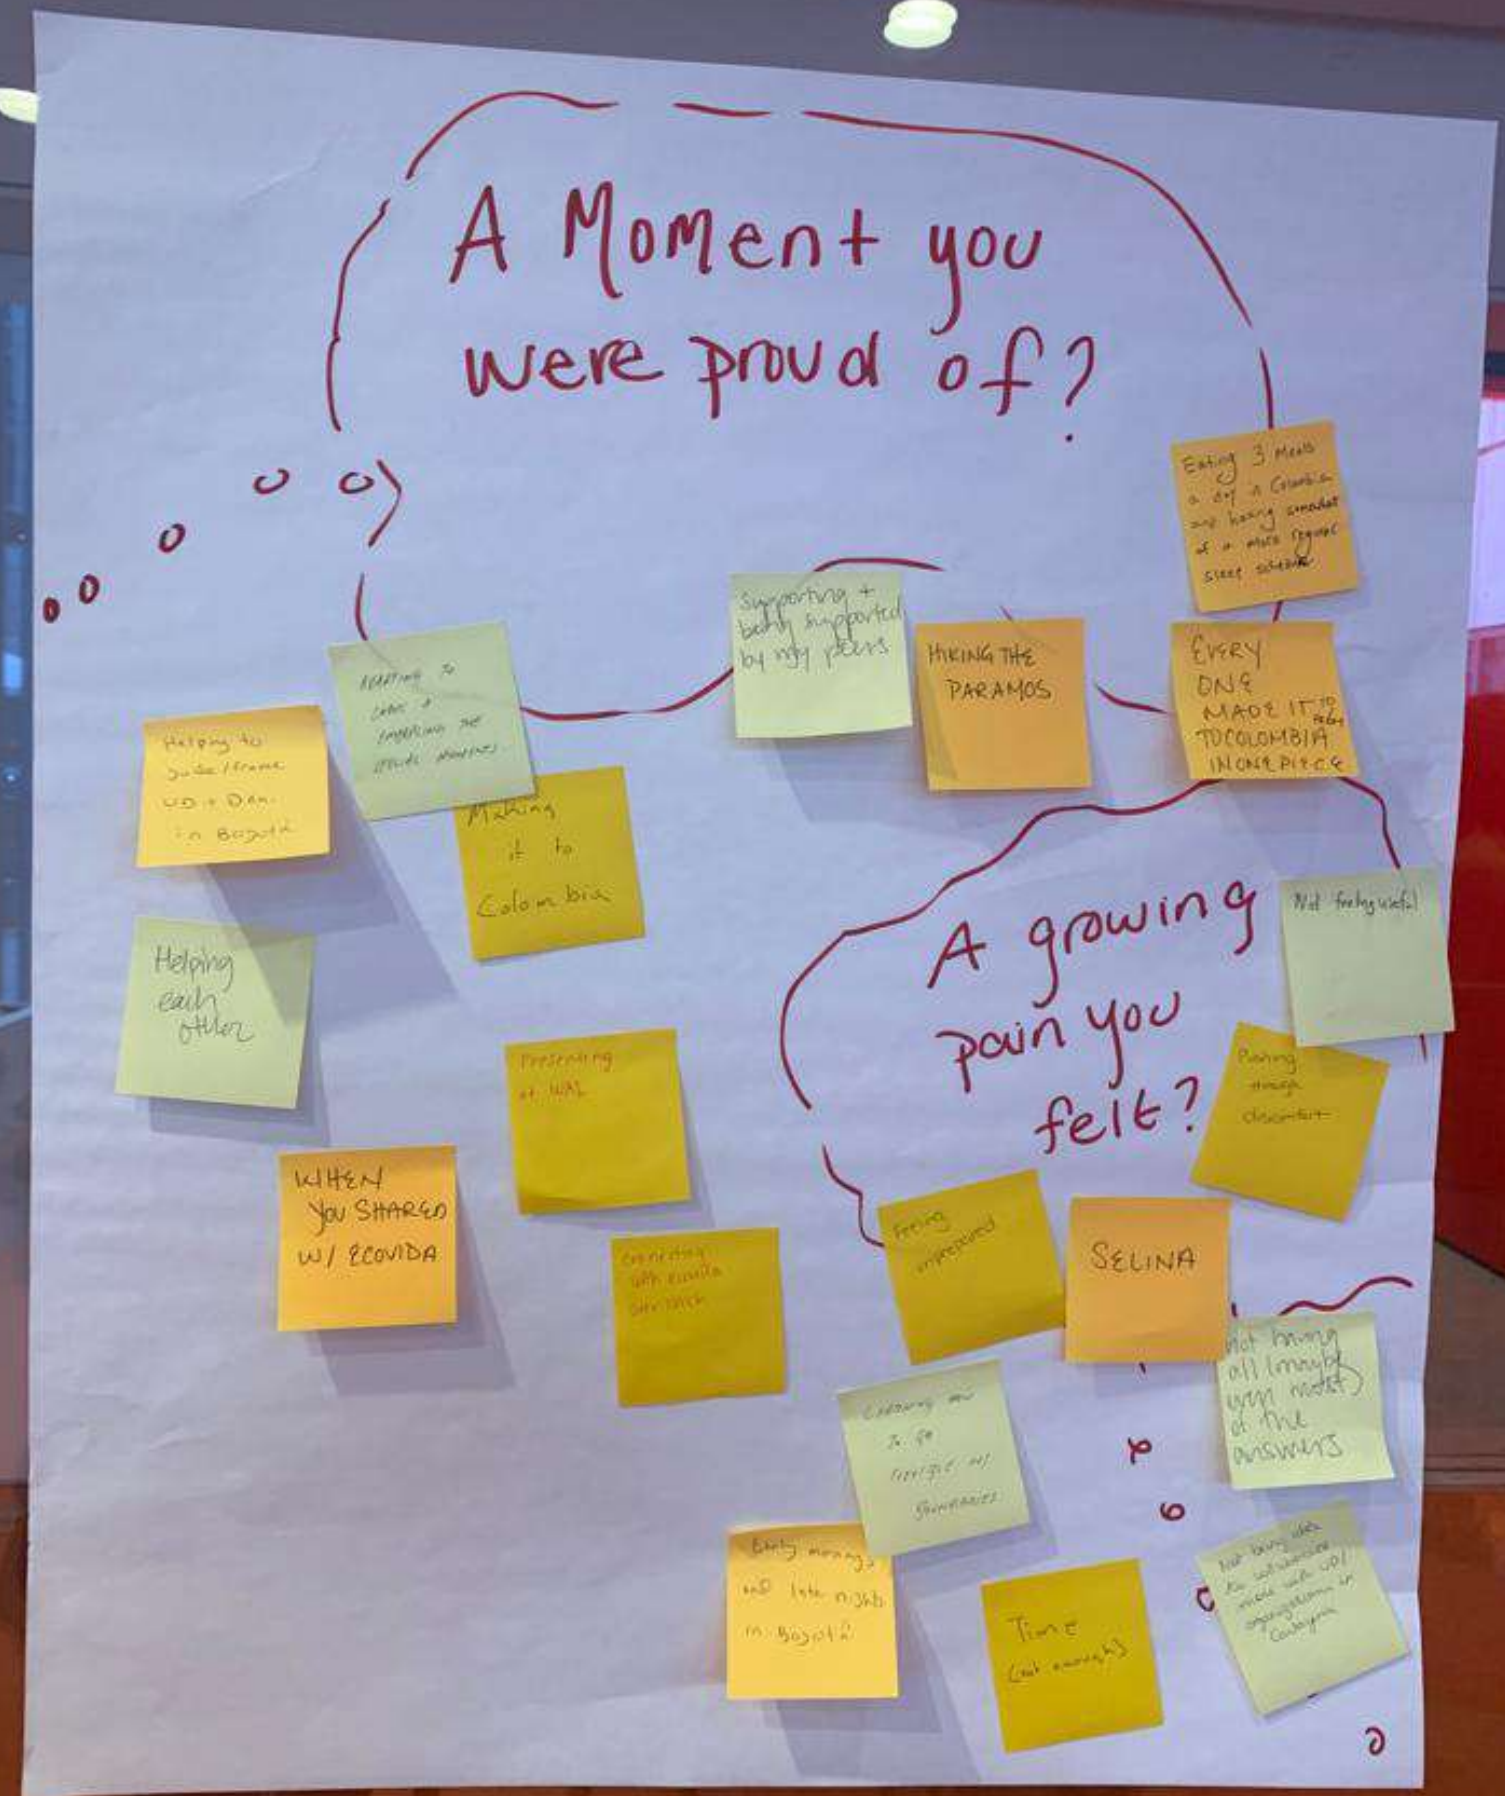 A Moment you
were proud of?
Eating 3 Meals
a day in Colombia
and having somewhat
of a more regular
sleep schedule
Supporting +
being supported
by my peers
HIKING THE
PARAMOS
EVERY
ONE
MADE IT TO
TO COLOMBIA
IN ONE PIECE
ADAPTING TO
+
EMBRACING THE
MOMENTS.
Helping to
guide/frame
UD + Dan.
in Bogotá
Making
it to
Colombia
Helping
each
other
Presenting
at
WHEN
YOU SHARED
W/ ECOVIDA
Connecting
with
over lunch
A growing
pain you
felt?
Not feeling useful
Pushing
through
discomfort
Feeling
unprepared
SELINA
not having
all (maybe
even most)
of the
answers
Learning how
to be
flexible w/
boundaries
Early mornings
and late nights
in Bogotá
Time
(not enough)
Not being able
to
more with UD/
organizations in
Cartagena